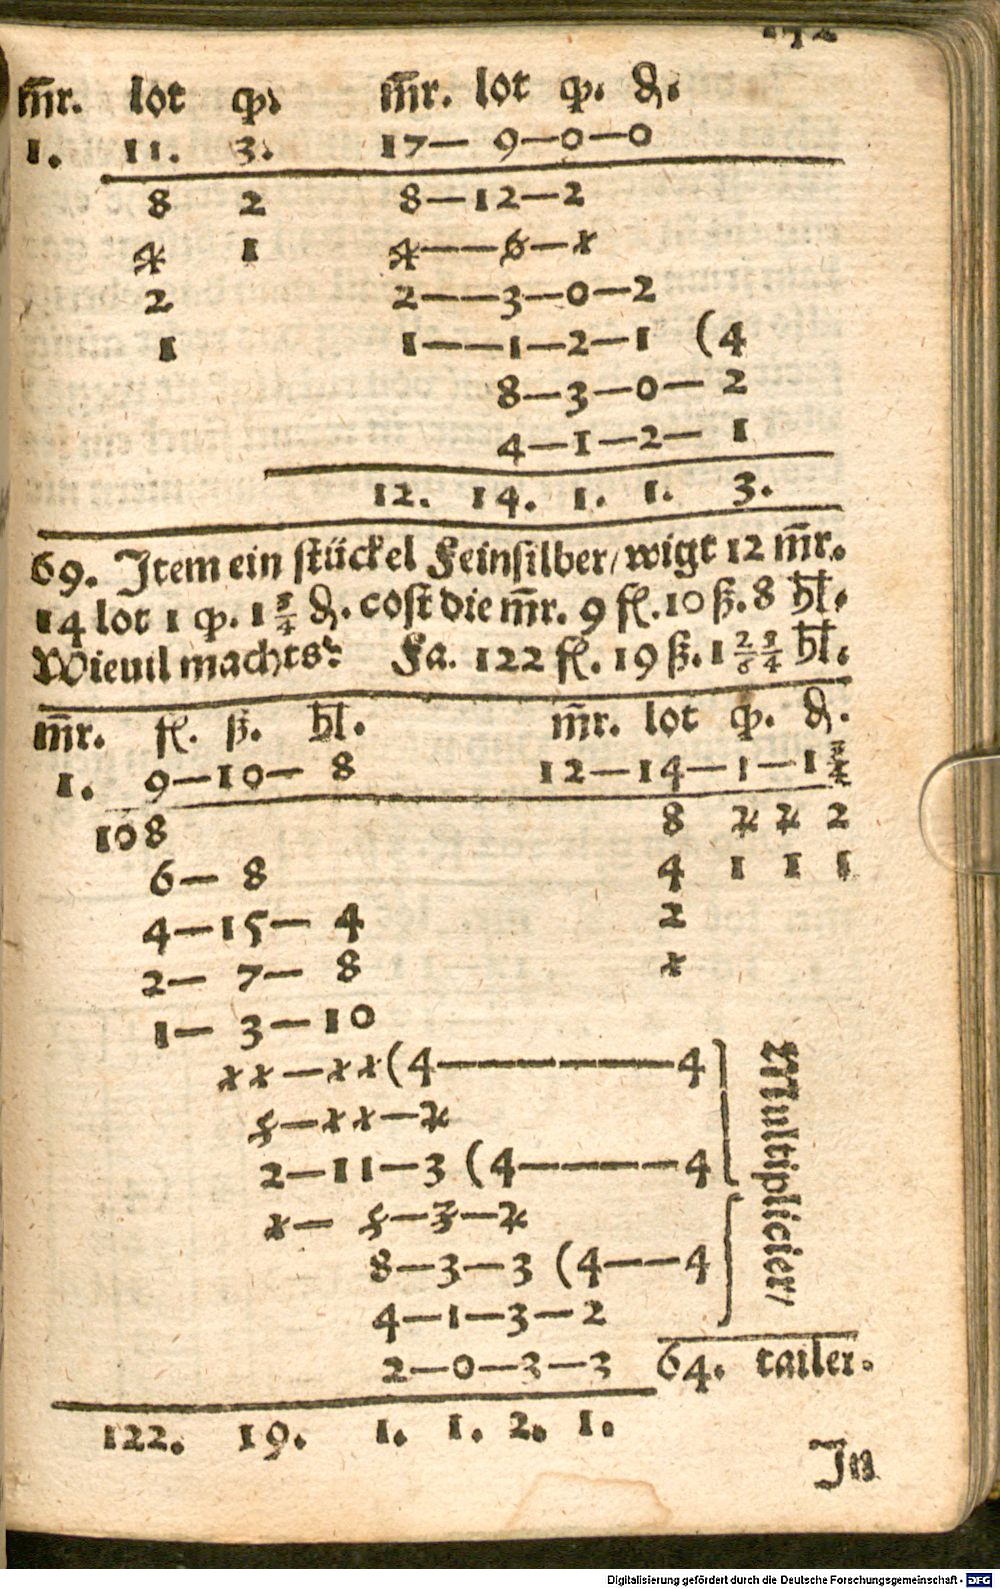 m̄r. lot q̨. m̄r. lot q̨. ₰.
1. 11. 3. 17— 9—0—0
8 2 8—12—2
4 1 4——6—1
2 2——3—0—2
1 1——1—2—1 (4
8—3—0—2
4—1—2—1
12. 14. 1. 1. 3.
69. Item ein stückel Feinsilber/ wigt 12 m̄r.
14 lot 1 q̨. 1 3/4 ₰. cost die m̄r. 9 fl. 10 ß. 8 hl.
Wieuil machts? Fa. 122 fl. 19 ß. 1 2/6 1/4 hl.
m̄r. fl. ß. hl. m̄r. lot q̨. ₰.
1. 9—10— 8 12—14—1—1 3/4
108 8 2 2 2
6— 8 4 1 1 1
4—15— 4 2
2— 7— 8 1
1— 3—10
11—11(4————4
5—11—2
2—11—3 (4————4
1— 5—3—2
8—3—3 (4——4
4—1—3—2
2—0—3—3 64. tailer.
Multiplicier/
122. 19. 1. 1. 2. 1.
In
Digitalisierung gefördert durch die Deutsche Forschungsgemeinschaft - DFG